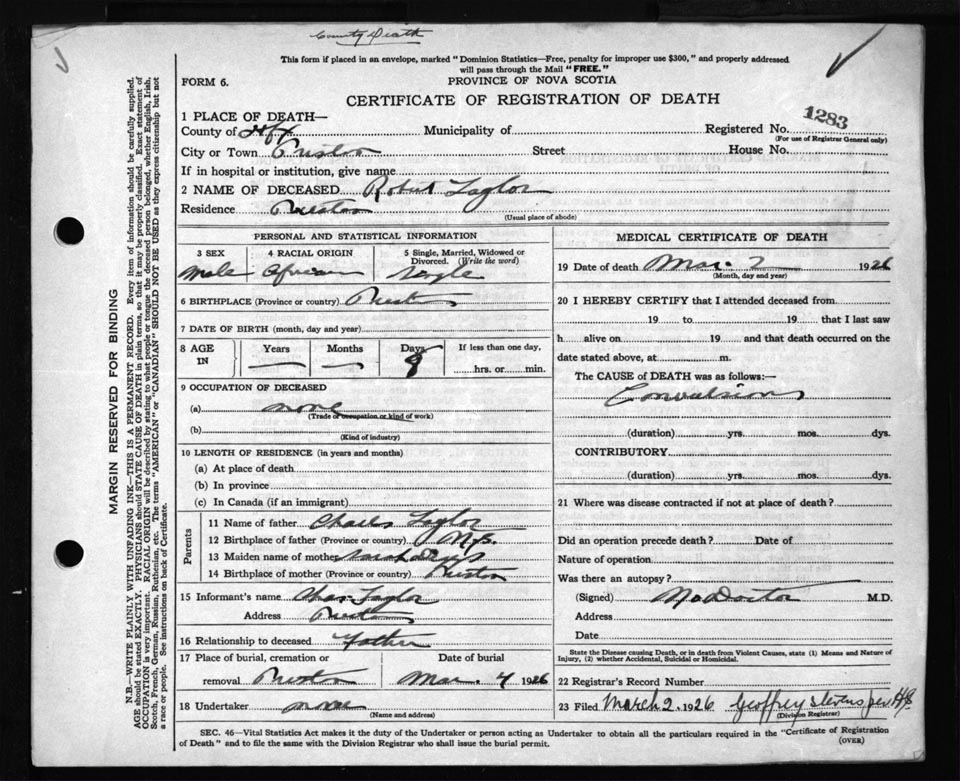 County Death
This form if placed in an envelope, marked "Dominion Statistics—Free, penalty for improper use $300," and properly addressed
will pass through the Mail "FREE."
FORM 6.
PROVINCE OF NOVA SCOTIA
CERTIFICATE OF REGISTRATION OF DEATH
1 PLACE OF DEATH—
1283
County of Hfx Municipality of Registered No.
(For use of Registrar General only)
City or Town Preston Street House No.
If in hospital or institution, give name
2 NAME OF DECEASED Robert Taylor
Residence Preston
(Usual place of abode)
PERSONAL AND STATISTICAL INFORMATION
3 SEX 4 RACIAL ORIGIN 5 Single, Married, Widowed or
Divorced. (Write the word)
Male African Single
6 BIRTHPLACE (Province or country) Preston
7 DATE OF BIRTH (month, day and year)
8 AGE IN Years Months Days If less than one day,
— — 9 hrs. or min.
9 OCCUPATION OF DECEASED
(a) none
(Trade or occupation or kind of work)
(b)
(Kind of industry)
10 LENGTH OF RESIDENCE (in years and months)
(a) At place of death
(b) In province
(c) In Canada (if an immigrant)
Parents
11 Name of father Charles Taylor
12 Birthplace of father (Province or country) N.S.
13 Maiden name of mother Sarah
14 Birthplace of mother (Province or country) Preston
15 Informant's name Chas. Taylor
Address Preston
16 Relationship to deceased Father
17 Place of burial, cremation or Date of burial
removal Preston Mar. 4 1926
18 Undertaker none
(Name and address)
MEDICAL CERTIFICATE OF DEATH
19 Date of death Mar. 1926
(Month, day and year)
20 I HEREBY CERTIFY that I attended deceased from
19 to 19 that I last saw
h alive on 19 and that death occurred on the
date stated above, at m.
The CAUSE of DEATH was as follows:—
Convulsions
(duration) yrs. mos. dys.
CONTRIBUTORY
(duration) yrs. mos. dys.
21 Where was disease contracted if not at place of death?
Did an operation precede death? Date of
Nature of operation
Was there an autopsy?
(Signed) No Doctor M.D.
Address
Date
State the Disease causing Death, or in death from Violent Causes, state (1) Means and Nature of
Injury, (2) whether Accidental, Suicidal or Homicidal.
22 Registrar's Record Number
23 Filed March 2. 1926 Geoffrey Stevens
(Division Registrar)
SEC. 46—Vital Statistics Act makes it the duty of the Undertaker or person acting as Undertaker to obtain all the particulars required in the "Certificate of Registration
of Death" and to file the same with the Division Registrar who shall issue the burial permit.
(OVER)
MARGIN RESERVED FOR BINDING
N.B.—WRITE PLAINLY WITH UNFADING INK—THIS IS A PERMANENT RECORD. Every item of information should be carefully supplied.
AGE should be stated EXACTLY. PHYSICIANS should STATE CAUSE OF DEATH in plain terms, so that it may be properly classified. Exact statement of
OCCUPATION is very important. RACIAL ORIGIN will be described by stating to what people or tongue the deceased person belonged, whether English, Irish,
Scotch, French, German, Russian, Ruthenian, etc. The terms "AMERICAN" or "CANADIAN" SHOULD NOT BE USED as they express citizenship but not
a race or people. See instructions on back of Certificate.